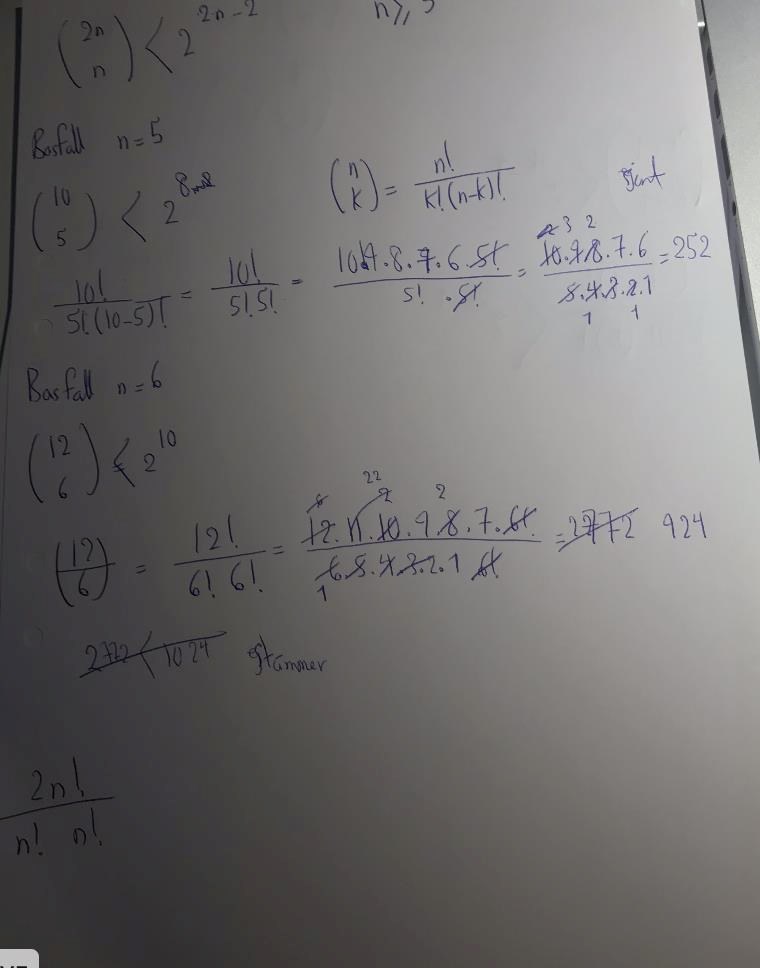 (2n n) < 2^{2n-2} n ≥ 5
Basfall n = 5
(10 5) < 2^8 (n k) = n! / k!(n-k)!
10! / 5!(10-5)! = 10! / 5!5! = 10·9·8·7·6·5! / 5!·5! = 10·9·8·7·6 / 5·4·3·2·1 = 252
Basfall n = 6
(12 6) < 2^10
(12/6) = 12! / 6! 6! = 12·11·10·9·8·7·6! / 6·5·4·3·2·1 6! = 2772 924
2772 < 1024 Stämmer
2n! / n! n!